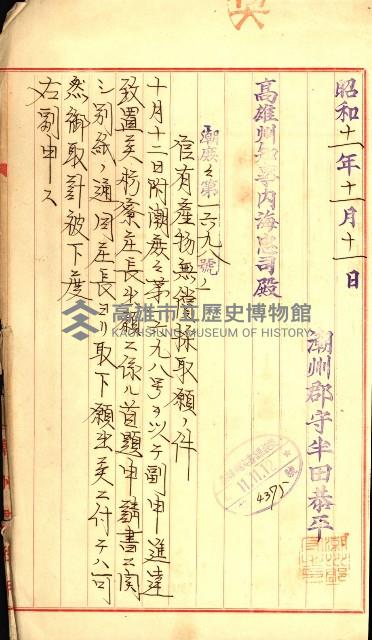 昭和十一年十一月十一日
潮州郡守半田恭平
高雄州知事內海忠司殿
潮庶之第一六九八號ノ一
官有產物無償採取願ノ件
十月十二日附潮庶之第一六九八号ヲ以テ副申進達
致置候枋寮庄長出願ニ係ル首題申請書ニ関
シ別紙ノ通同庄長ヨリ取下願出候ニ付テハ可
然御取計被下度
右副申ス
11.11.12
4375
號
高雄市立歷史博物館
KAOHSIUNG MUSEUM OF HISTORY